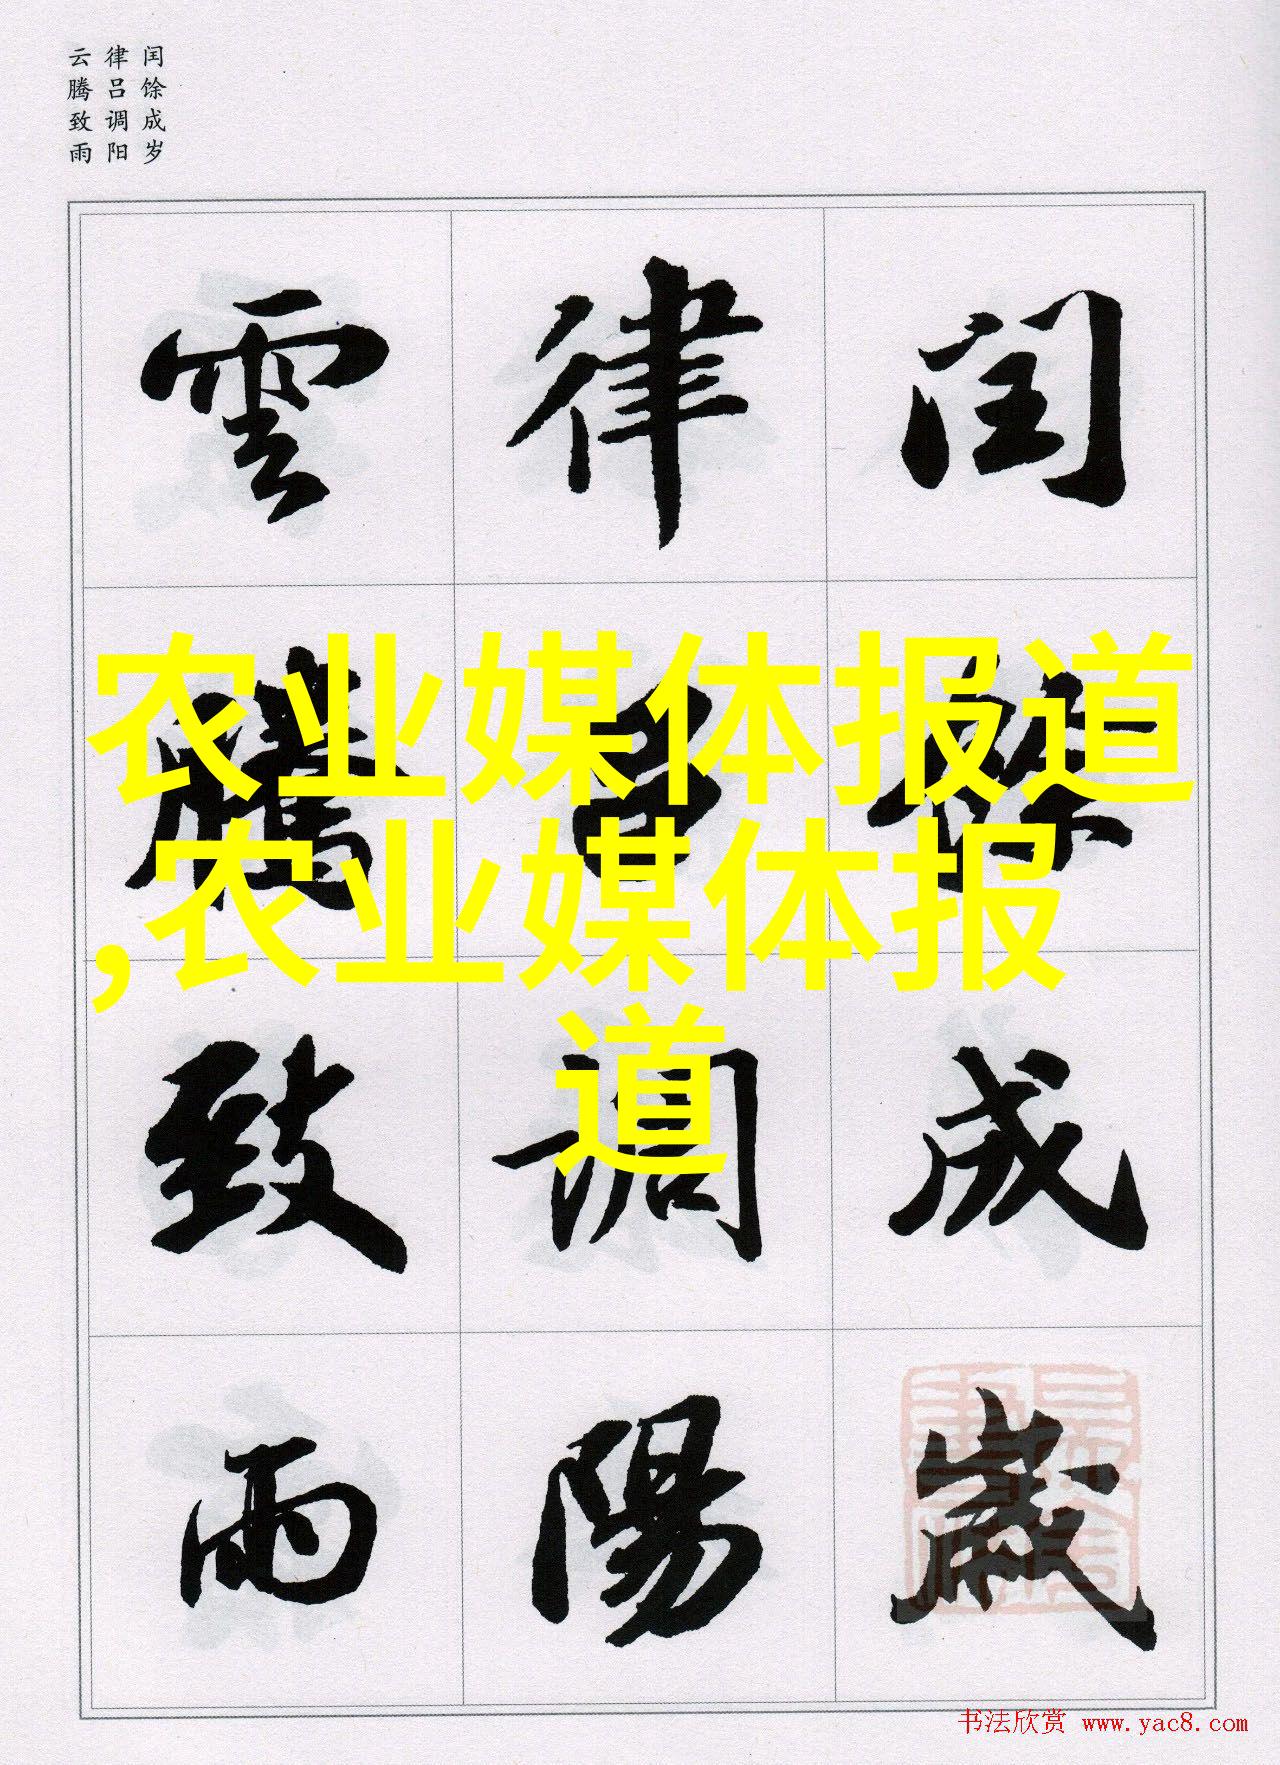 闰馀成岁
律吕调阳
云腾致雨
閏餘成歲
律吕調陽
雲騰致雨
农业媒体报道
,农业媒体报
道
书法欣赏 www.yac8.com